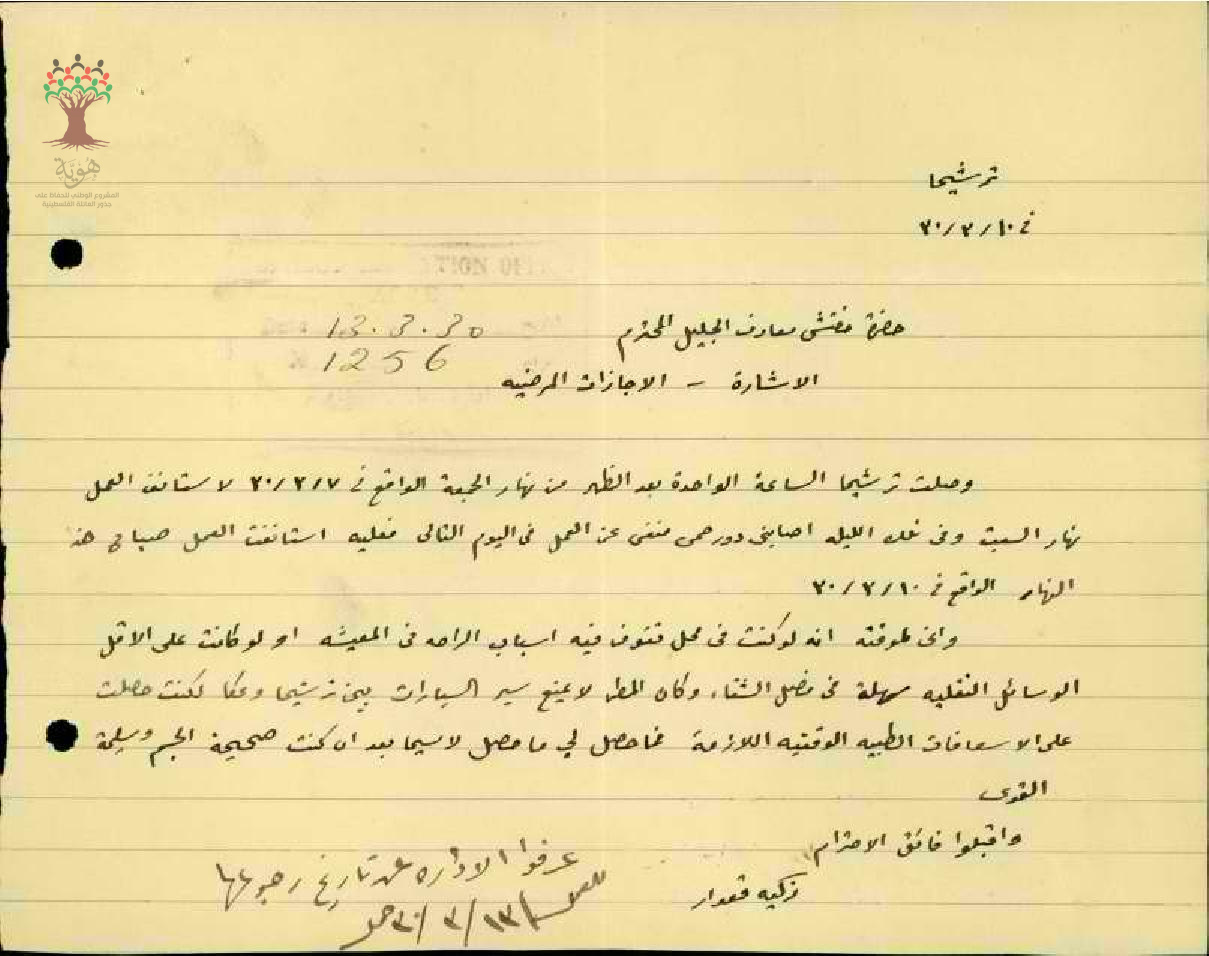 هوية
المشروع الوطني للحفاظ على
جذور العائلة الفلسطينية
ترشيحا
في ١٠/٣/٣٠
TION OFF
حضرة مفتش معارف الجليل المحترم
13.3.30
1256
الاشارة - الاجازات المرضيه
وصلت ترشيحا الساعة الواحدة بعد الظهر من نهار الجمعة الواقع في ٧/٣/٣٠ لاستانف العمل
نهار السبت وفي تلك الليله اصابني دور حمى منعني عن العمل في اليوم التالي فعليه استانفت العمل صباح هذا
النهار الواقع في ١٠/٣/٣٠
واني لموقنه انه لو كنت في محل تتوفر فيه اسباب الراحه في المعيشه او لو كانت على الاقل
الوسائل النقليه سهلة في فصل الشتاء وكان المطر لا يمنع سير السيارات بين ترشيحا وعكا لكنت حصلت
على الاسعافات الطبيه الوقتيه اللازمة لما حصل لي ما حصل لاسيما بعد ان كنت صحيحة الجسم وسليمة
القوى
واقبلوا فائق الاحترام
زكيه قعدار
عرفوا الاداره عن تاريخ رجوعها
١٣/٣/٣٠